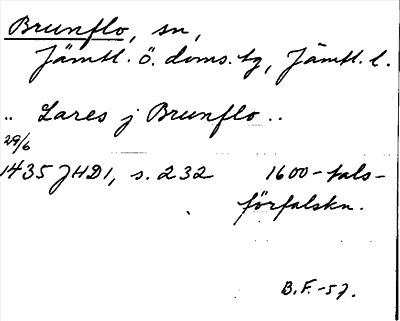 Brunflo, sn,
Jämtl. ö. doms.tg, Jämtl. l.
.. Lares j Brunflo ..
29/6
1435 JHD1, s. 232 1600-tals-
förfalskn.
B.F.-57.